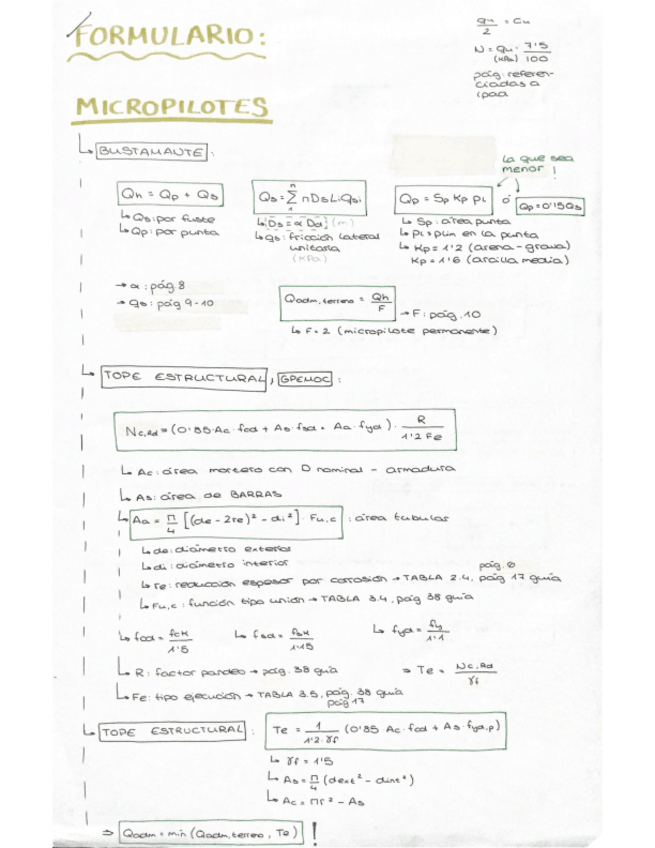 FORMULARIO:
qu/2 = Cu
N = Qu · 7'5/100
(KPa)
pág: referen-
ciadas a
ipad
MICROPILOTES
↳ BUSTAMANTE:
La que sea
menor!
Qh = Qp + Qs
Qs = Σ πDsLiqsi
n
1
Qp = Sp Kp Pl ó Qp = 0'15Qs
↳ Qs: por fuste
↳ Qp: por punta
↳ [Ds = α Dd] (m)
↳ qs: fricción lateral
unitaria
(KPa)
↳ Sp: área punta
↳ Pl: plim en la punta
↳ Kp = 1'2 (arena - grava)
Kp = 1'6 (arcilla media)
→ α: pág. 8
→ Qs: pág 9-10
Qadm, terreno = Qh/F → F: pág. 10
↳ F = 2 (micropilote permanente)
↳ TOPE ESTRUCTURAL, GPEMOC:
Nc,Rd = (0'85·Ac·fcd + As·fsd + Aa·fyd) · R/1'2 Fe
↳ Ac: área mortero con D nominal - armadura
↳ As: área de BARRAS
↳ Aa = π/4 [(de - 2re)² - di²] · Fu,c : área tubular
↳ de: diámetro exterior
↳ di: diámetro interior
pág. 8
↳ re: reducción espesor por corrosión → TABLA 2.4, pág 17 guía
↳ Fu,c: función tipo unión → TABLA 3.4, pág 38 guía
↳ fcd = fck/1'5 ↳ fsd = fsk/1'15 ↳ fyd = fy/1'1
↳ R: factor pandeo → pág. 38 guía ⇒ Te = Nc,Rd/γf
↳ Fe: tipo ejecución → TABLA 3.5, pág. 38 guía
pág 17
↳ TOPE ESTRUCTURAL: Te = 1/1'2·γf (0'85 Ac·fcd + As·fyd,p)
↳ γf = 1'5
↳ As = π/4 (dext² - dint²)
↳ Ac = πr² - As
⇒ Qadm = min (Qadm, terreno, Te) !